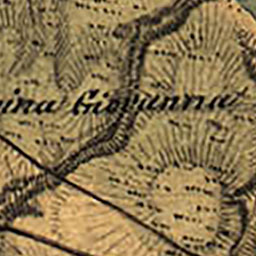 ina Giovanna